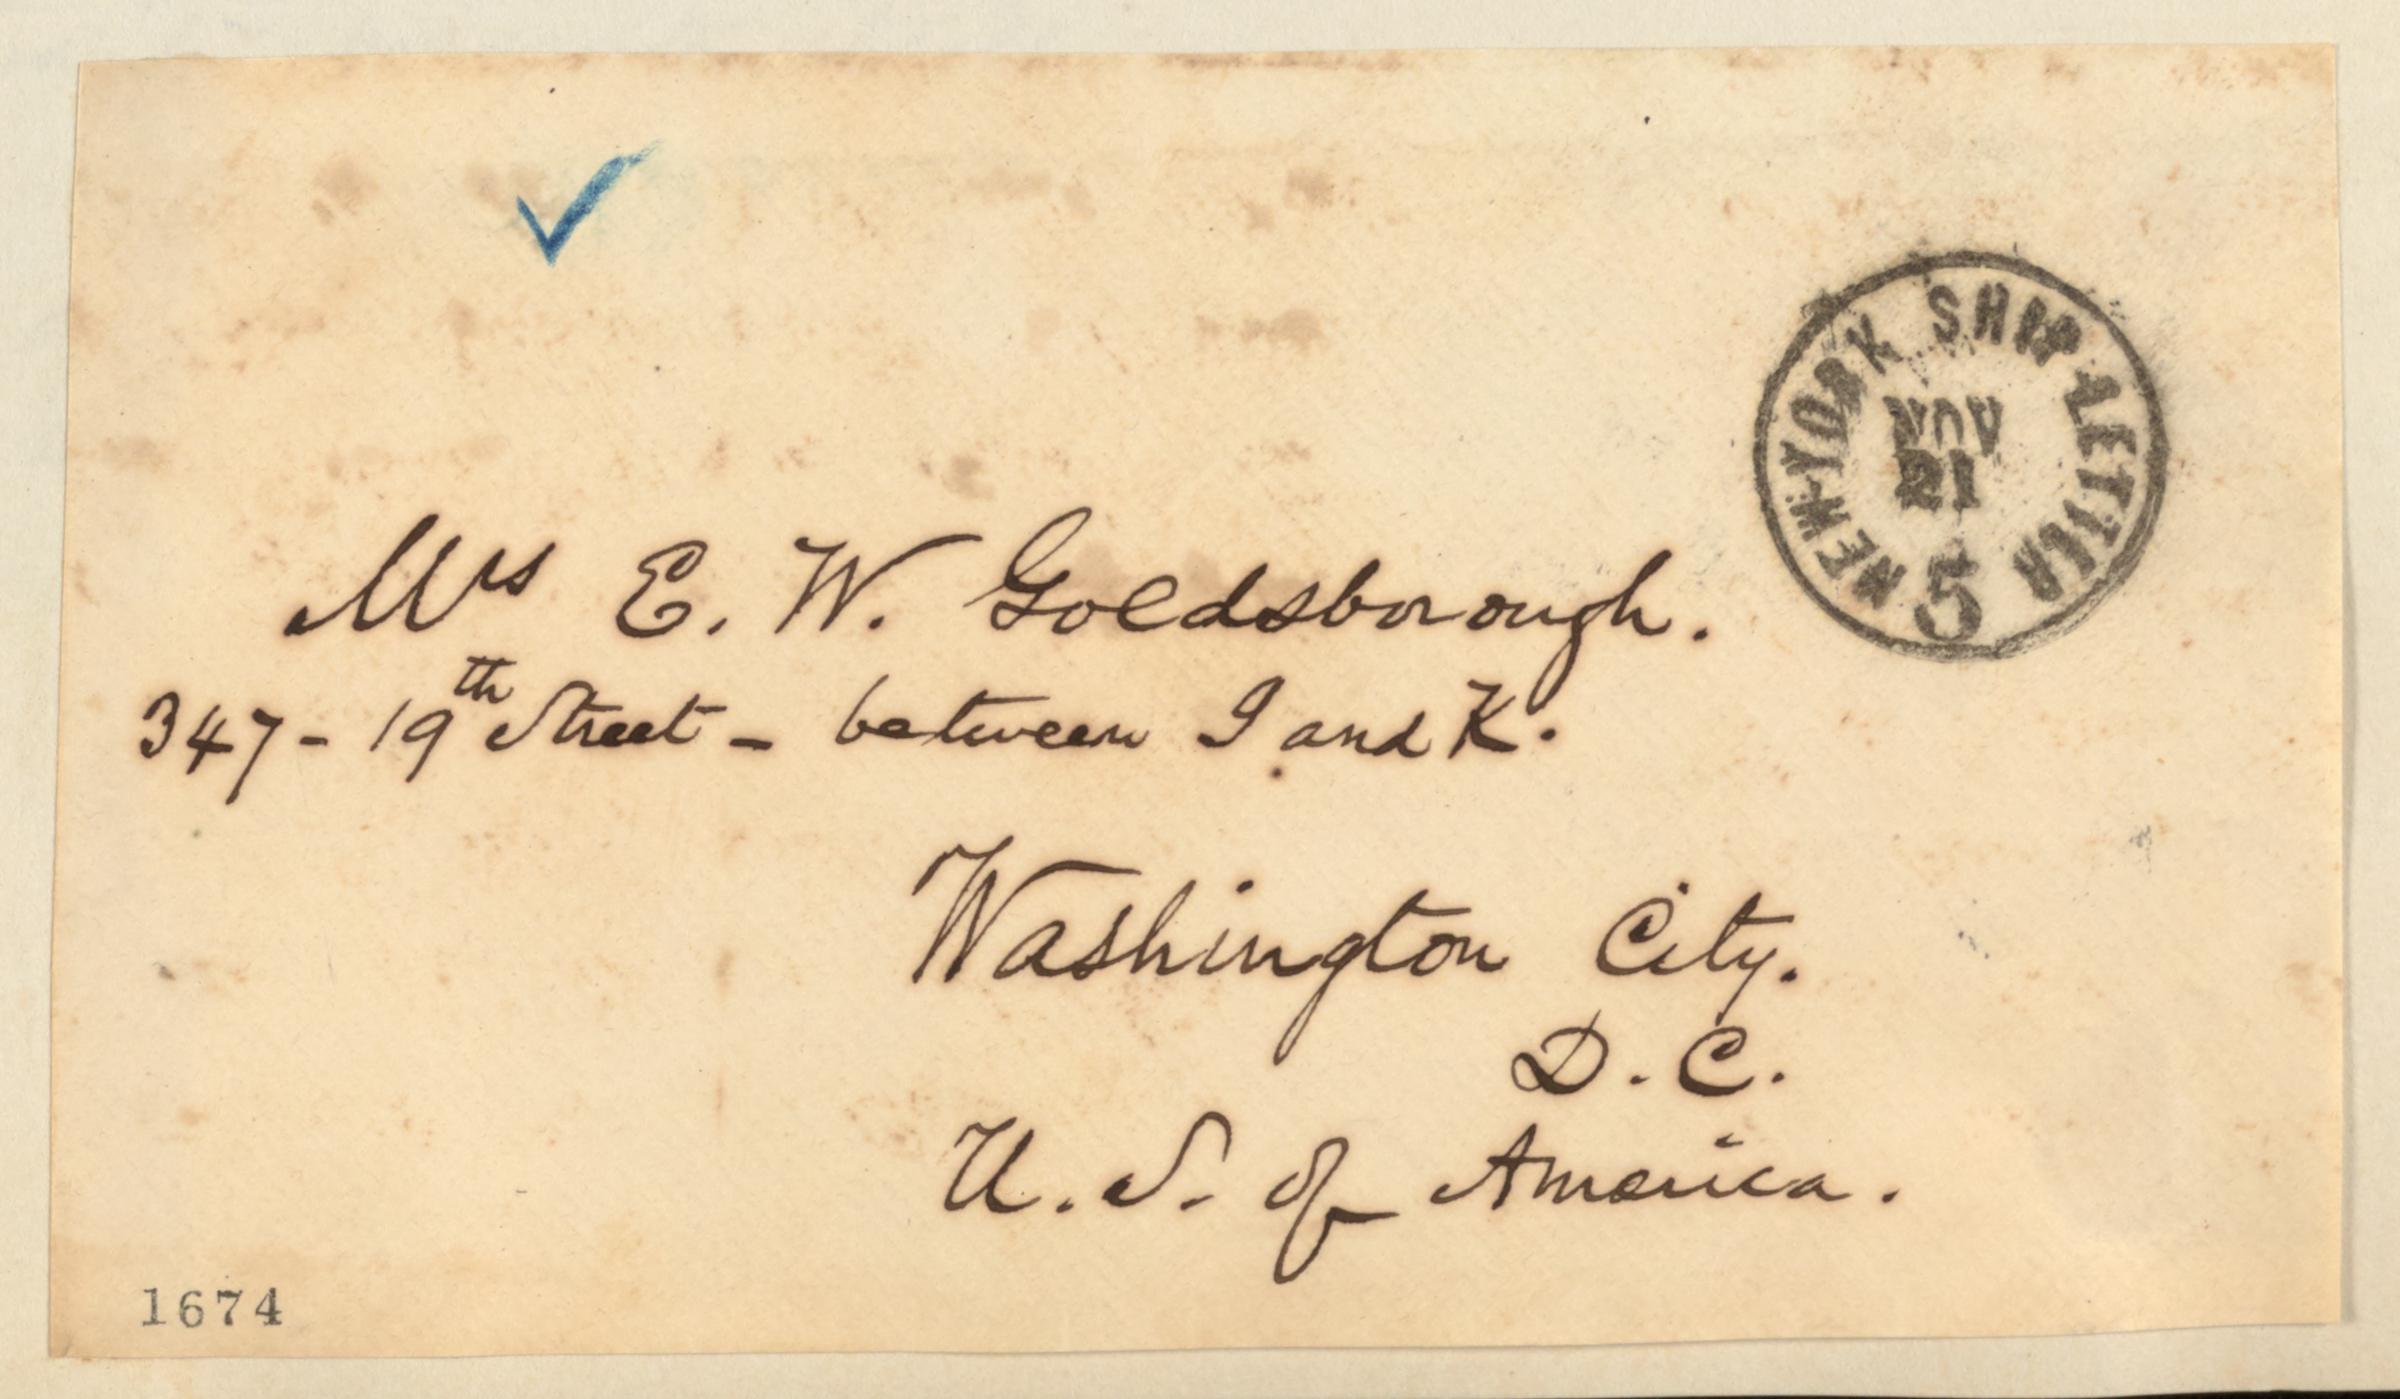 NEW-YORK SHIP LETTER
NOV
21
5
Mrs E. W. Goldsborough.
347 - 19th Street - between I and K.
Washington City.
D. C.
U. S. of America.
1674